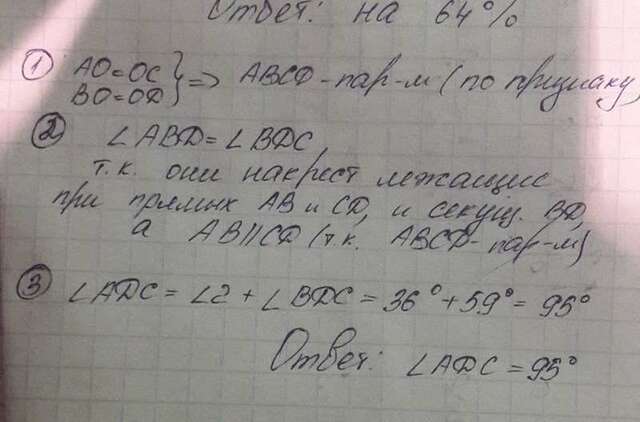 Ответ: на 64%
① AO=OC
BO=OD } => ABCD-пар-м (по признаку)
② ∠ABD=∠BDC,
т.к. они накрест лежащие
при прямых AB и CD, и секущ. BD,
а AB||CD (т.к. ABCD-пар-м)
③ ∠ADC = ∠2 + ∠BDC = 36° + 59° = 95°
Ответ: ∠ADC = 95°